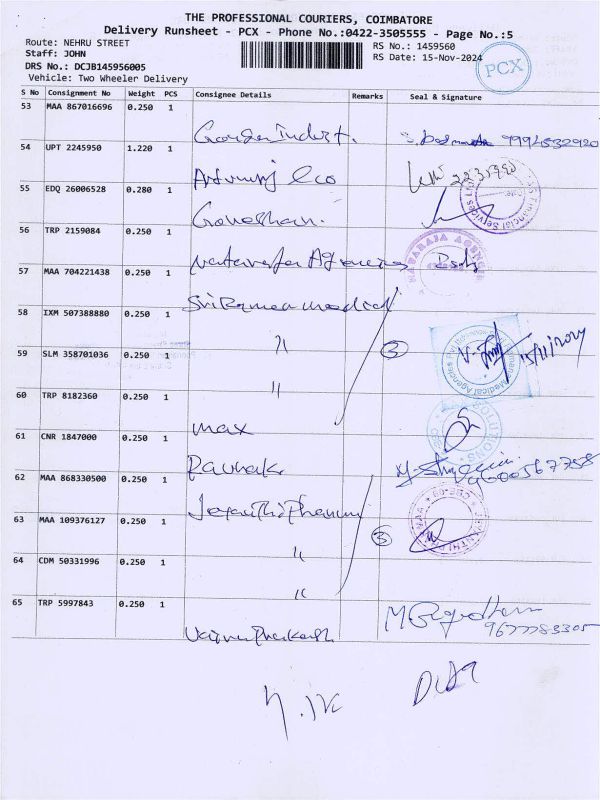 THE PROFESSIONAL COURIERS, COIMBATORE
Delivery Runsheet - PCX - Phone No.:0422-3505555 - Page No.:5
Route: NEHRU STREET
RS No.: 1459560
Staff: JOHN
RS Date: 15-Nov-2024
DRS No.: DCJB145956005
PCX
Vehicle: Two Wheeler Delivery
S No Consignment No Weight PCS Consignee Details Remarks Seal & Signature
53 MAA 867016696 0.250 1
9994532920
54 UPT 2245950 1.220 1
55 EDQ 26006528 0.280 1
Financial Services
Gowdhan.
56 TRP 2159084 0.250 1
NATARAJA AGENCIES
Nataraja Agencies
57 MAA 704221438 0.250 1
Sri Ramea medical
58 IXM 507388880 0.250 1
"
3
15/11/2024
59 SLM 358701036 0.250 1
Medical Agencies
"
60 TRP 8182360 0.250 1
SOLUTIONS
max
61 CNR 1847000 0.250 1
9600567758
62 MAA 868330500 0.250 1
63 MAA 109376127 0.250 1
"
3
64 CDM 50331996 0.250 1
"
65 TRP 5997843 0.250 1
9677783305